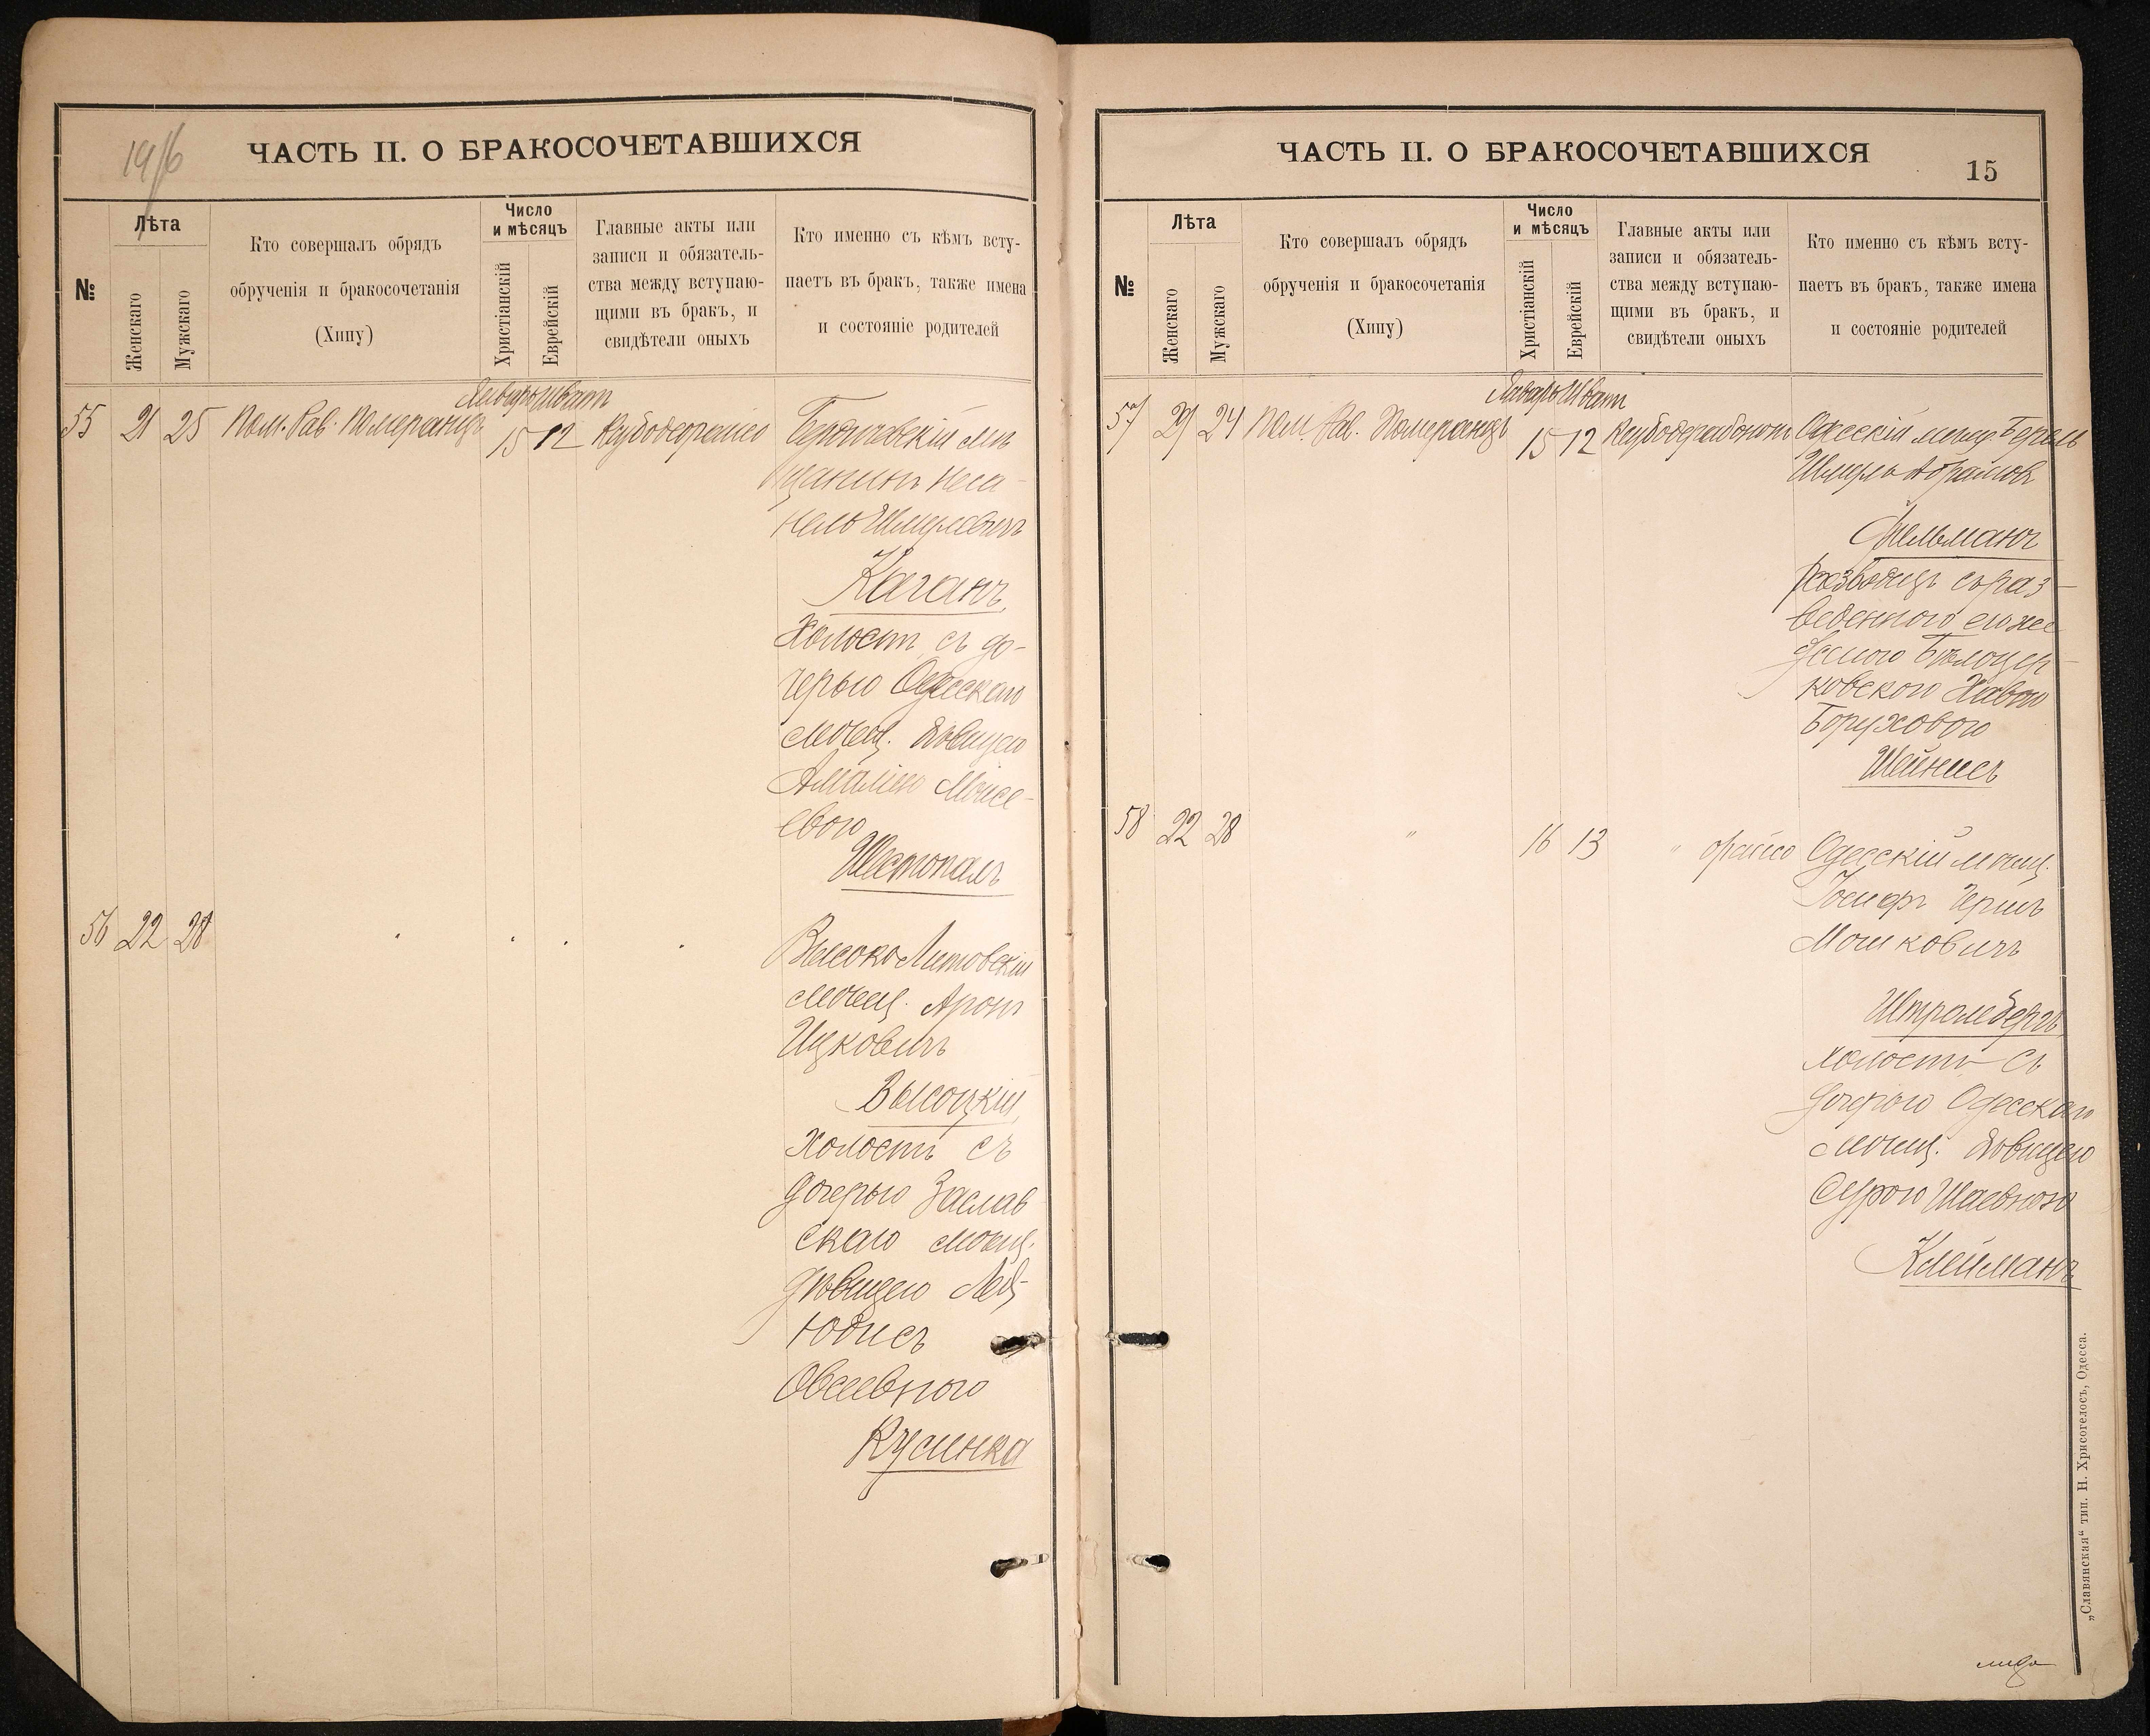 1916
ЧАСТЬ II. О БРАКОСОЧЕТАВШИХСЯ
№
Лѣта
Женскаго
Мужскаго
Кто совершалъ обрядъ
обрученія и бракосочетанія
(Хипу)
Число
и мѣсяцъ
Христіанскій
Еврейскій
Главные акты или
записи и обязатель-
ства между вступаю-
щими въ бракъ, и
свидѣтели оныхъ
Кто именно съ кѣмъ всту-
паетъ въ бракъ, также имена
и состояніе родителей
Январь Шватъ
55 21 25 Пом. Рав. Померанцъ 15 12
мѣ
щанинъ Неса-
нель Шмулевичъ
Каганъ,
Холостъ, съ до-
черью Одесскаго
мѣщ. дѣвицею
Амаліею Моисе-
евою
Шестопалъ
56 22 28
Высоко Литовскій
мѣщ. Аронъ
Ицковичъ
Высоцкій,
холостъ съ
дочерью Заслав
скаго мѣщ.
дѣвицею Лея-
Юдисъ
Овсеевною
Кусинка
ЧАСТЬ II. О БРАКОСОЧЕТАВШИХСЯ
15
№
Лѣта
Женскаго
Мужскаго
Кто совершалъ обрядъ
обрученія и бракосочетанія
(Хипу)
Число
и мѣсяцъ
Христіанскій
Еврейскій
Главные акты или
записи и обязатель-
ства между вступаю-
щими въ бракъ, и
свидѣтели оныхъ
Кто именно съ кѣмъ всту-
паетъ въ бракъ, также имена
и состояніе родителей
Январь Шватъ
57 29 24 Пом. Рав. Померанцъ 15 12 Одесскій мѣщ. Берель
Шмуль Абрамов
Фельманъ
разводецъ съ раз-
веденною
Бѣлоцер-
ковскою Хавою
Боруховою
Шейнисъ
58 22 28 " 16 13 " Одесскій мѣщ.
Іосифъ Гершъ
Мошковичъ
Штромбергъ
холостъ съ
дочерью Одесскаго
мѣщ. дѣвицею
Сурою Шаевною
Клейманъ
„Славянская“ тип. Н. Хрисогелосъ, Одесса.